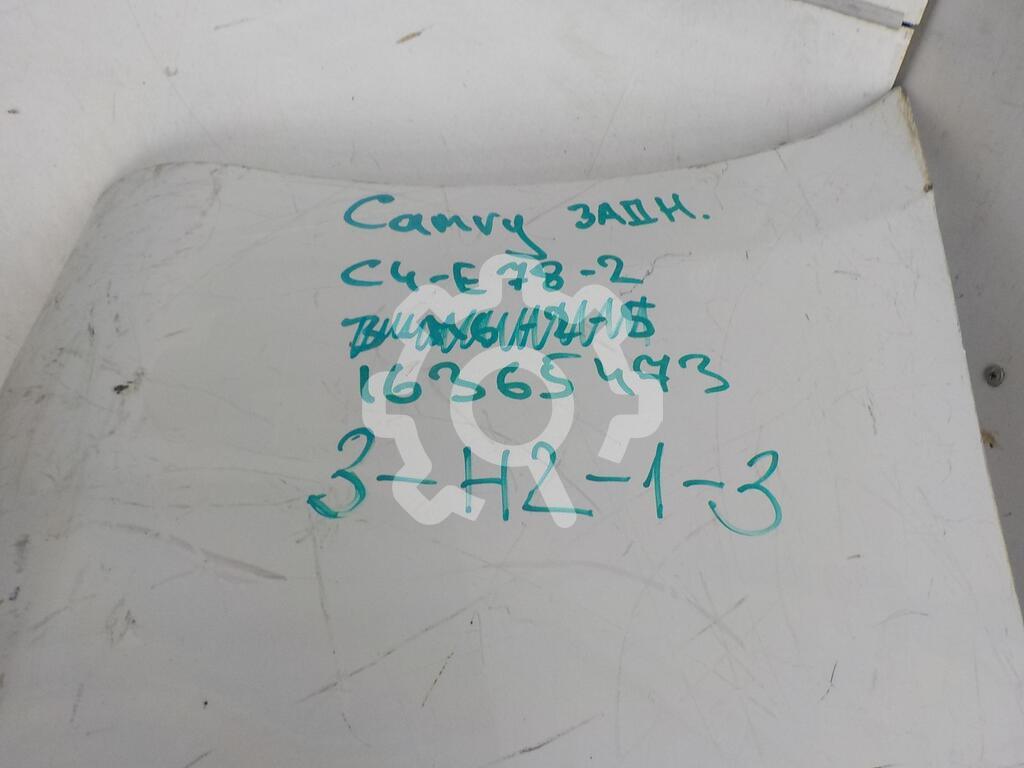 Camry ЗАДН.
C4-E78-2
16365473
3-H2-1-3